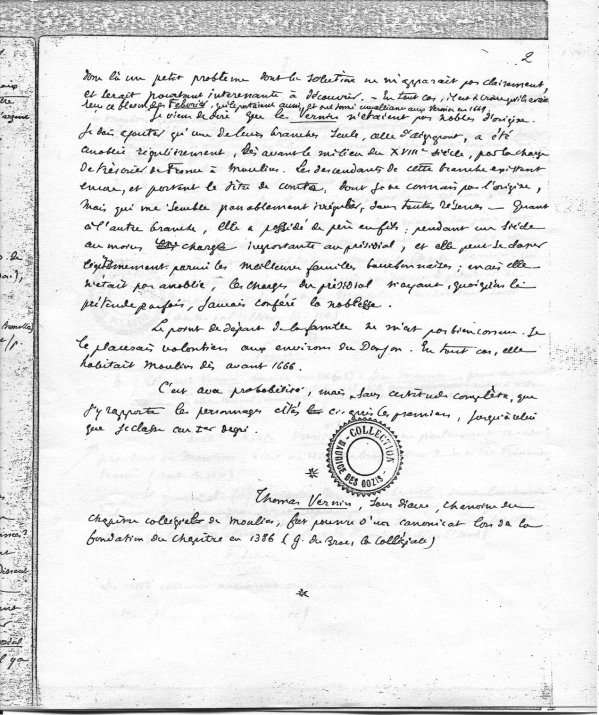 2
donc là un petit problème dont la solution ne m'apparait pas clairement,
et serait pourtant intéressante à découvrir. - En tout cas, il est à croire qu'ils
ce blason des Feburier, qui le portaient aussi, et ont une alliance aux Vernin en 1669.
Je viens de dire que les Vernin n'étaient pas nobles d'origine.
Je dois ajouter qu'une de leurs branches seule, celle d'Aigrepont, a été
anoblie régulièrement, dès avant le milieu du XVIIIe siècle, par la charge
de trésorier de France à Moulins. Les descendants de cette branche existent
encore, et portent le titre de comte, dont je ne connais pas l'origine,
mais qui me semble passablement irrégulier, sous toutes réserves — Quant
à l'autre branche, elle a possédé de père en fils, pendant un siècle
au moins charge importante au présidial, et elle peut se classer
légitimement parmi les meilleures familles bourbonnaises ; mais elle
n'était pas anoblie, les charges du présidial n'ayant, quoiqu'on le
prétende parfois, jamais conféré la noblesse.
Le point de départ de la famille ne m'est pas bien connu. Je
le placerais volontiers aux environs du Donjon. En tout cas, elle
habitait Moulins dès avant 1666.
C'est avec probabilité, mais sans certitude complète, que
j'y rapporte les personnages cités ci-après les premiers, jusqu'à celui
que je classe au 1er degré.
COLLECTION
BAUDE DES GOZIS
Thomas Vernin, sous diacre, chanoine du
chapitre collégial de Moulins, fut pourvu d'un canonicat lors de la
fondation du chapitre en 1386 (G. du Broc, la Collégiale)